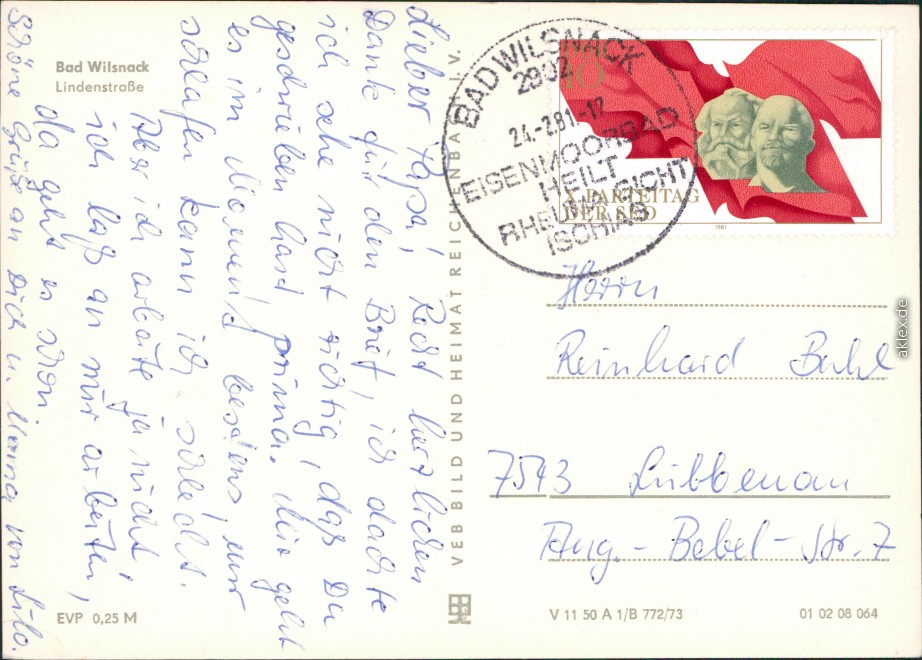 Bad Wilsnack
Lindenstraße
Lieber Papa! Recht herzlichen
Dank für den Brief, ich dachte
ich sehe nicht richtig, daß Du
geschrieben hast prima. Mir geht
es im Moment bestens, nur
schlafen kann ich schlecht.
Aber ich arbeite ja nicht
ich laß an mir arbeiten,
da geht es schon.
Schöne Grüße an Dich u. Mama von Lilo.
EVP 0,25 M
VEB BILD UND HEIMAT REICHENBACH I. V.
BAD WILSNACK
2902
24.-2.81.-17
EISENMOORBAD
HEILT
RHEUMA GICHT
ISCHIAS
10
X. PARTEITAG
DER SED
1981
Herrn
Reinhard Buhl
7543 Lübbenau
Aug.-Bebel-Str. 7
V 11 50 A 1/B 772/73
01 02 08 064
aklex.de